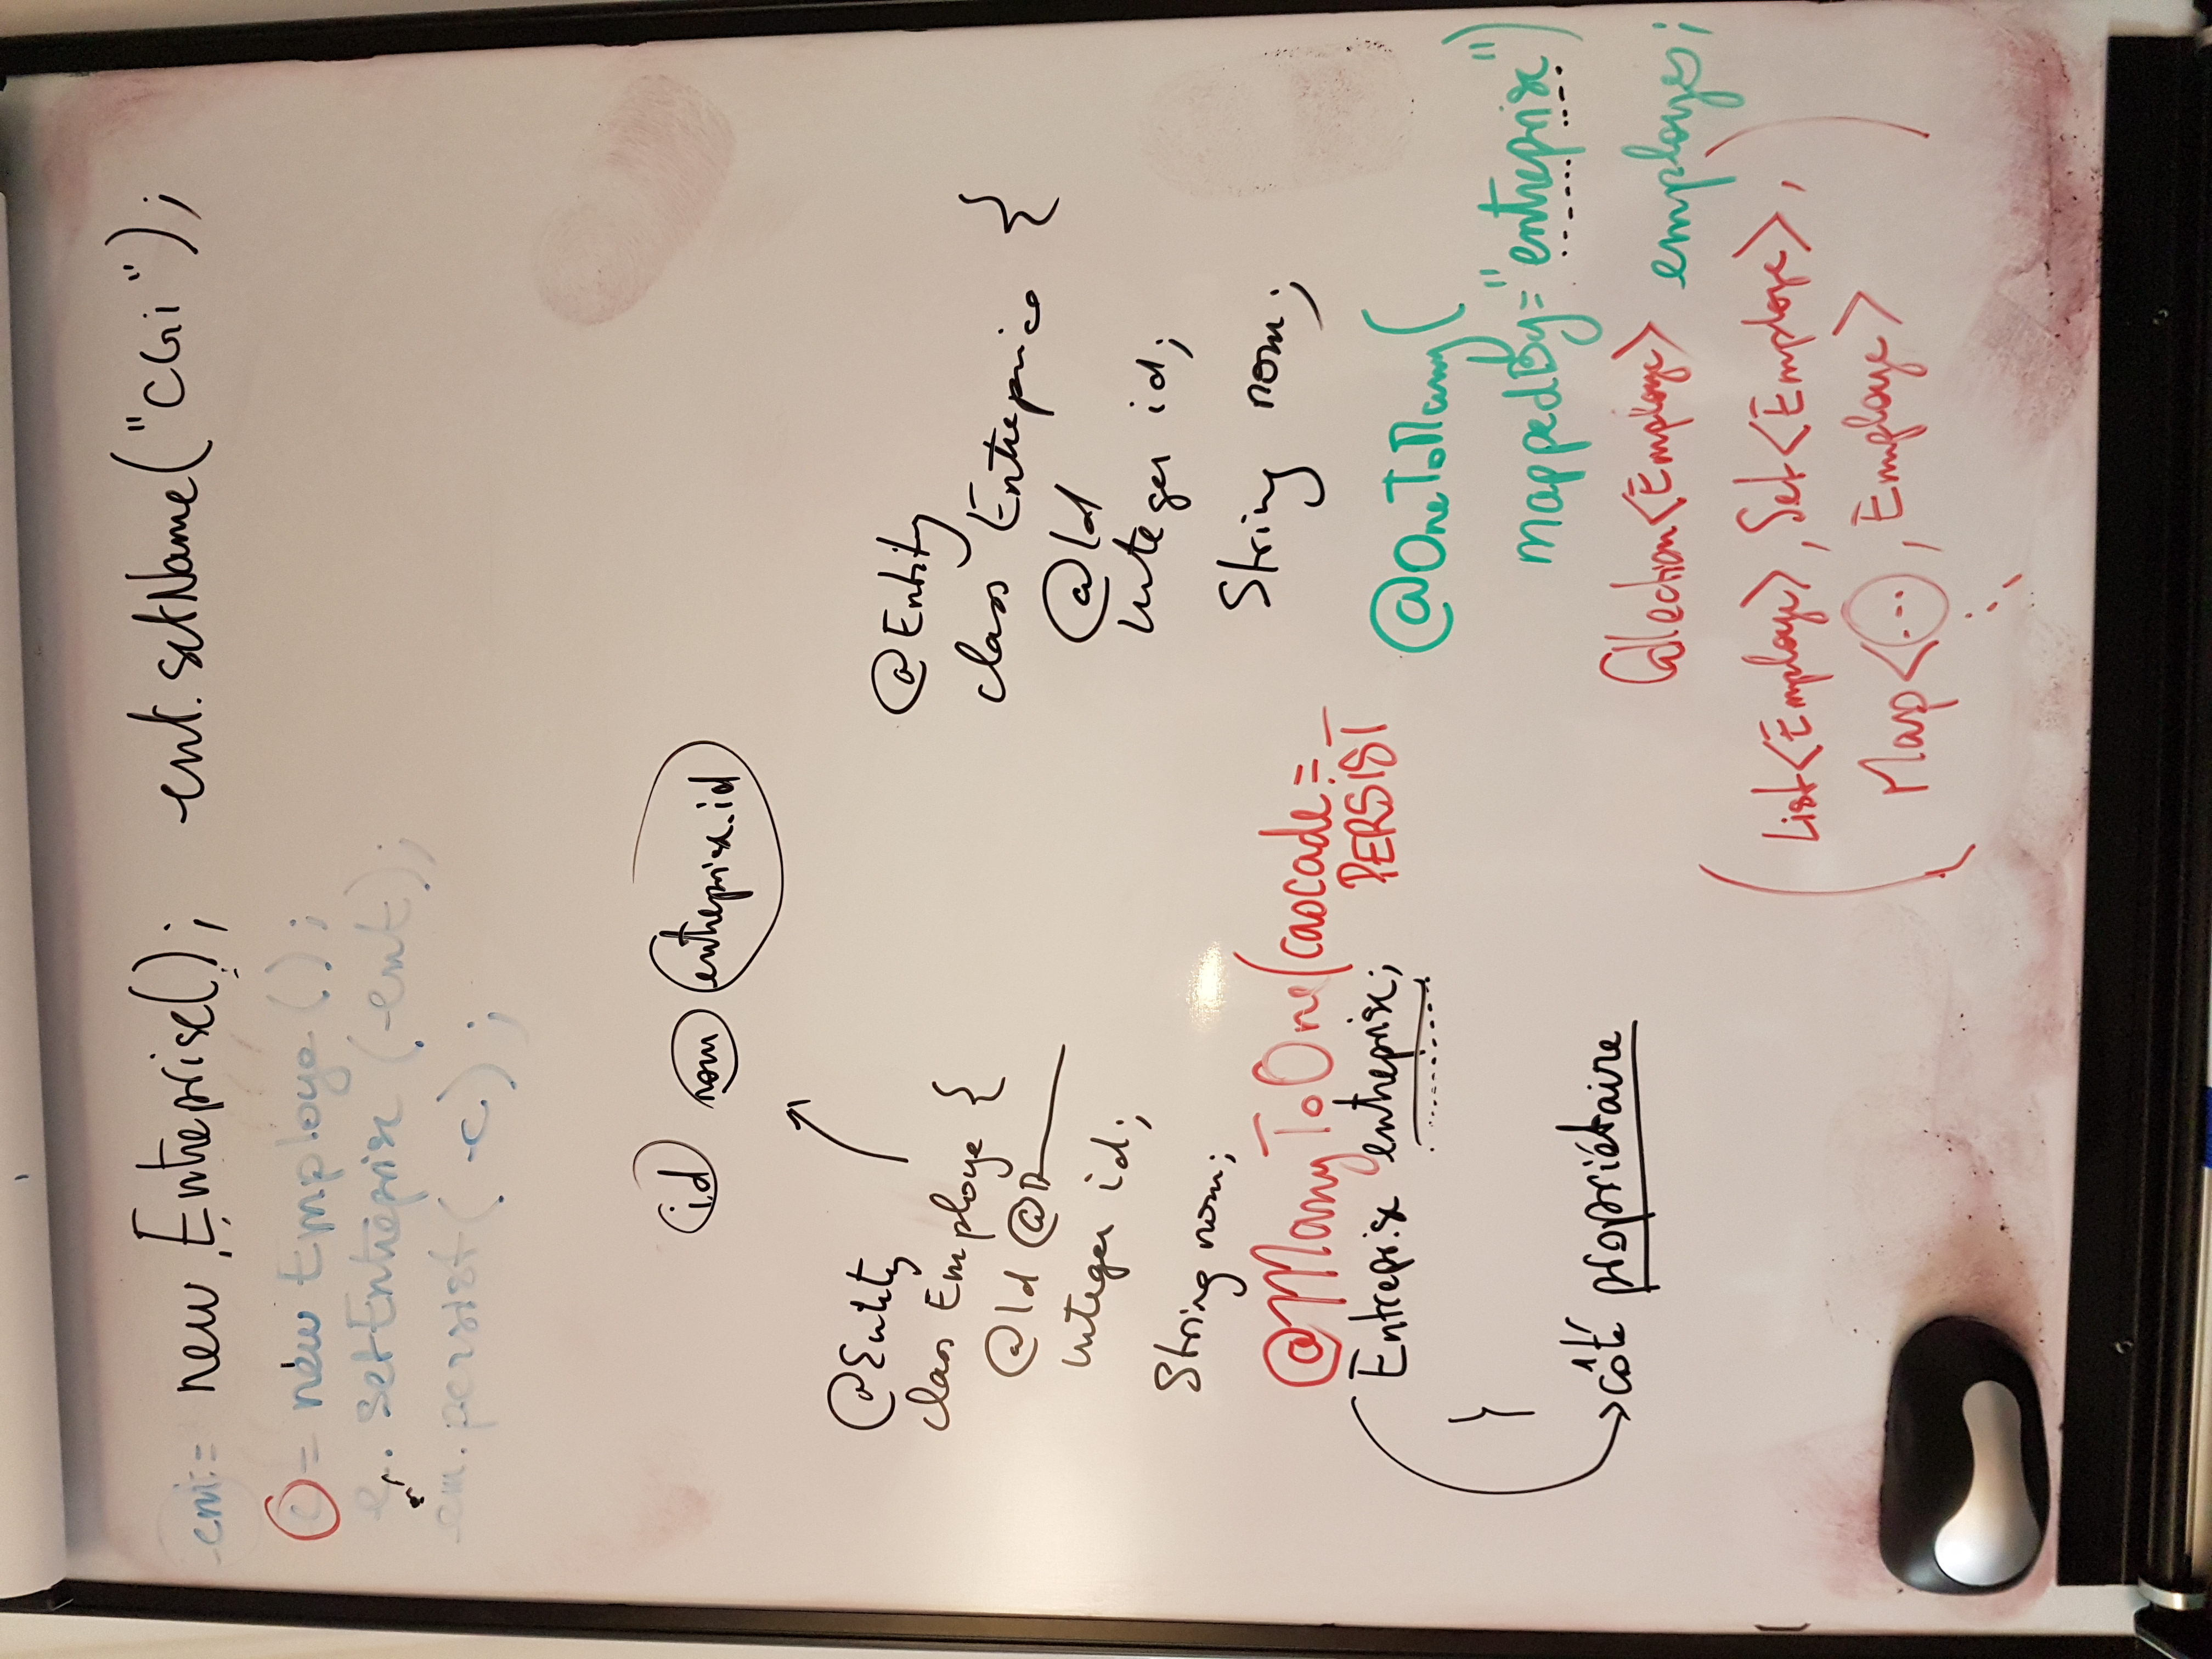 ent = new Entreprise(); ent.setName("CGi");
e = new Employe();
e.setEntreprise(ent);
em.persist(e);
id nom entreprise.id
@Entity
class Employe {
@Id @
Integer id;
String nom;
@ManyToOne(cascade=_
PERSIST
Entreprise entreprise;
}
côté propriétaire
@Entity
class Entreprise {
@Id
Integer id;
String nom;
@OneToMany(
mappedBy="entreprise")
Collection<Employe> employes;
(List<Employe>, Set<Employe>,
Map<..., Employe>)